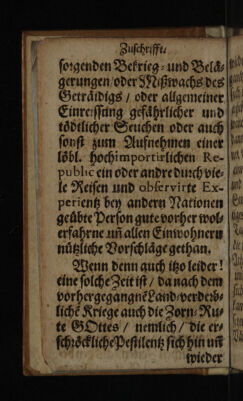 Zuschrifft.
sorgenden Bekrieg- und Belä-
gerungen/oder Mißwachs des
Geträidigs/ oder allgemeiner
Einreissung gefährlicher und
tödtlicher Seuchen oder auch
sonst zum Aufnehmen einer
löbl. hochimportirlichen Re-
public ein oder andre durch vie-
le Reisen und observirte Ex-
perientz bey andern Nationen
geübte Person gute vorher wol-
erfahrne uñ allen Einwohnern
nützliche Vorschläge gethan.
Wenn denn auch itzo leider!
eine solche Zeit ist/ da nach dem
vorhergegangnẽ Land-verderb-
lichẽ Kriege auch die Zorn-Ru-
te GOttes/ nemlich/ die er-
schröckliche Pestilentz sich hin uñ
wieder